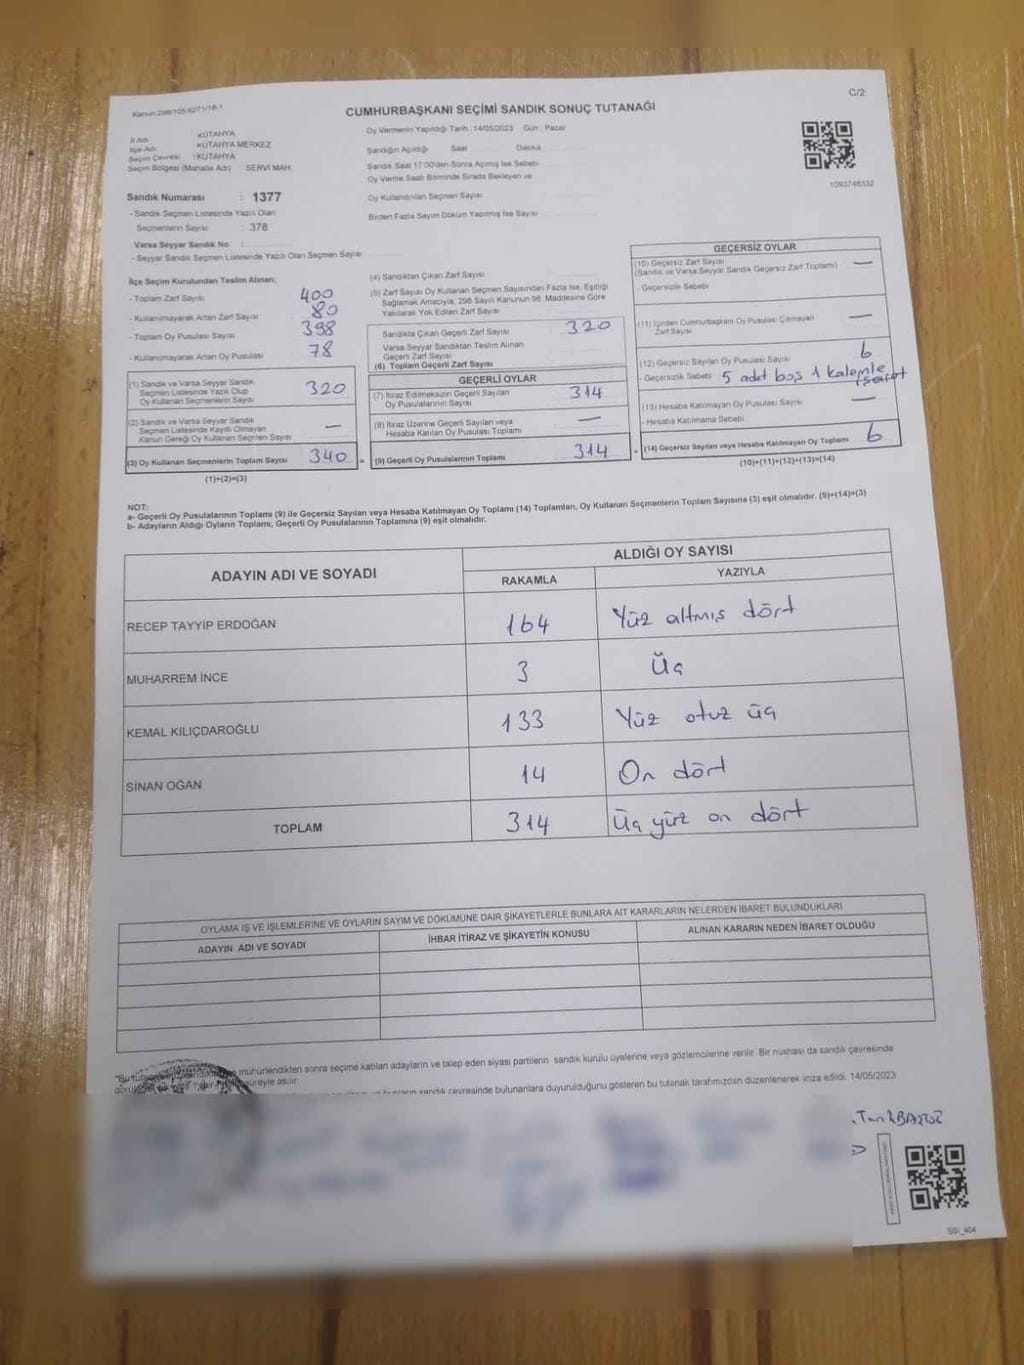 Kanun:298/105,6271/18-1
C/2
CUMHURBAŞKANI SEÇİMİ SANDIK SONUÇ TUTANAĞI
İl Adı KÜTAHYA
İlçe Adı KÜTAHYA MERKEZ
Seçim Çevresi : KÜTAHYA
Seçim Bölgesi (Mahalle Adı) SERVİ MAH.
Sandık Numarası : 1377
- Sandık Seçmen Listesinde Yazılı Olan
Seçmenlerin Sayısı : 378
Varsa Seyyar Sandık No. :
- Seyyar Sandık Seçmen Listesinde Yazılı Olan Seçmen Sayısı
Oy Vermenin Yapıldığı Tarih :14/05/2023 Gün : Pazar
Sandığın Açıldığı Saat Dakika
Sandık Saat 17:00'den Sonra Açılmış İse Sebebi
Oy Verme Saati Bitiminde Sırada Bekleyen ve
Oy Kullandırılan Seçmen Sayısı
Birden Fazla Sayım Döküm Yapılmış İse Sayısı
1093748332
İlçe Seçim Kurulundan Teslim Alınan;
- Toplam Zarf Sayısı 400
- Kullanılmayarak Artan Zarf Sayısı 80
- Toplam Oy Pusulası Sayısı 398
- Kullanılmayarak Artan Oy Pusulası 78
(1) Sandık ve Varsa Seyyar Sandık
Seçmen Listesinde Yazılı Olup
Oy Kullanan Seçmenlerin Sayısı 320
(2) Sandık ve Varsa Seyyar Sandık
Seçmen Listesinde Kayıtlı Olmayan
Kanun Gereği Oy Kullanan Seçmen Sayısı —
(3) Oy Kullanan Seçmenlerin Toplam Sayısı 340 =
(1)+(2)=(3)
(4) Sandıktan Çıkan Zarf Sayısı
(5) Zarf Sayısı Oy Kullanan Seçmen Sayısından Fazla İse, Eşitliği
Sağlamak Amacıyla; 298 Sayılı Kanunun 98. Maddesine Göre
Yakılarak Yok Edilen Zarf Sayısı
Sandıkta Çıkan Geçerli Zarf Sayısı 320
Varsa Seyyar Sandıktan Teslim Alınan
Geçerli Zarf Sayısı
(6) Toplam Geçerli Zarf Sayısı
GEÇERLİ OYLAR
(7) İtiraz Edilmeksizin Geçerli Sayılan
Oy Pusulalarının Sayısı 314
(8) İtiraz Üzerine Geçerli Sayılan veya
Hesaba Katılan Oy Pusulası Toplamı —
(9) Geçerli Oy Pusulalarının Toplamı 314 +
GEÇERSİZ OYLAR
(10) Geçersiz Zarf Sayısı
(Sandık ve Varsa Seyyar Sandık Geçersiz Zarf Toplamı) —
- Geçersizlik Sebebi
(11) İçinden Cumhurbaşkanı Oy Pusulası Çıkmayan
Zarf Sayısı —
(12) Geçersiz Sayılan Oy Pusulası Sayısı 6
- Geçersizlik Sebebi 5 adet boş 1 kalemle
işaret
(13) Hesaba Katılmayan Oy Pusulası Sayısı —
- Hesaba Katılmama Sebebi
(14) Geçersiz Sayılan veya Hesaba Katılmayan Oy Toplamı 6
(10)+(11)+(12)+(13)=(14)
NOT:
a- Geçerli Oy Pusulalarının Toplamı (9) ile Geçersiz Sayılan veya Hesaba Katılmayan Oy Toplamı (14) Toplamları, Oy Kullanan Seçmenlerin Toplam Sayısına (3) eşit olmalıdır. (9)+(14)=(3)
b- Adayların Aldığı Oyların Toplamı, Geçerli Oy Pusulalarının Toplamına (9) eşit olmalıdır.
ADAYIN ADI VE SOYADI
ALDIĞI OY SAYISI
RAKAMLA YAZIYLA
RECEP TAYYİP ERDOĞAN 164 Yüz altmış dört
MUHARREM İNCE 3 Üç
KEMAL KILIÇDAROĞLU 133 Yüz otuz üç
SİNAN OĞAN 14 On dört
TOPLAM 314 Üç yüz on dört
OYLAMA İŞ VE İŞLEMLERİNE VE OYLARIN SAYIM VE DÖKÜMÜNE DAİR ŞİKAYETLERLE BUNLARA AİT KARARLARIN NELERDEN İBARET BULUNDUKLARI
ADAYIN ADI VE SOYADI İHBAR İTİRAZ VE ŞİKAYETİN KONUSU ALINAN KARARIN NEDEN İBARET OLDUĞU
mühürlendikten sonra seçime katılan adayların ve talep eden siyasi partilerin sandık kurulu üyelerine veya gözlemcilerine verilir. Bir nüshası da sandık çevresinde
süreyle asılır.
sandık çevresinde bulunanlara duyurulduğunu gösteren bu tutanak tarafımızdan düzenlenerek imza edildi. 14/05/2023
SSI_404